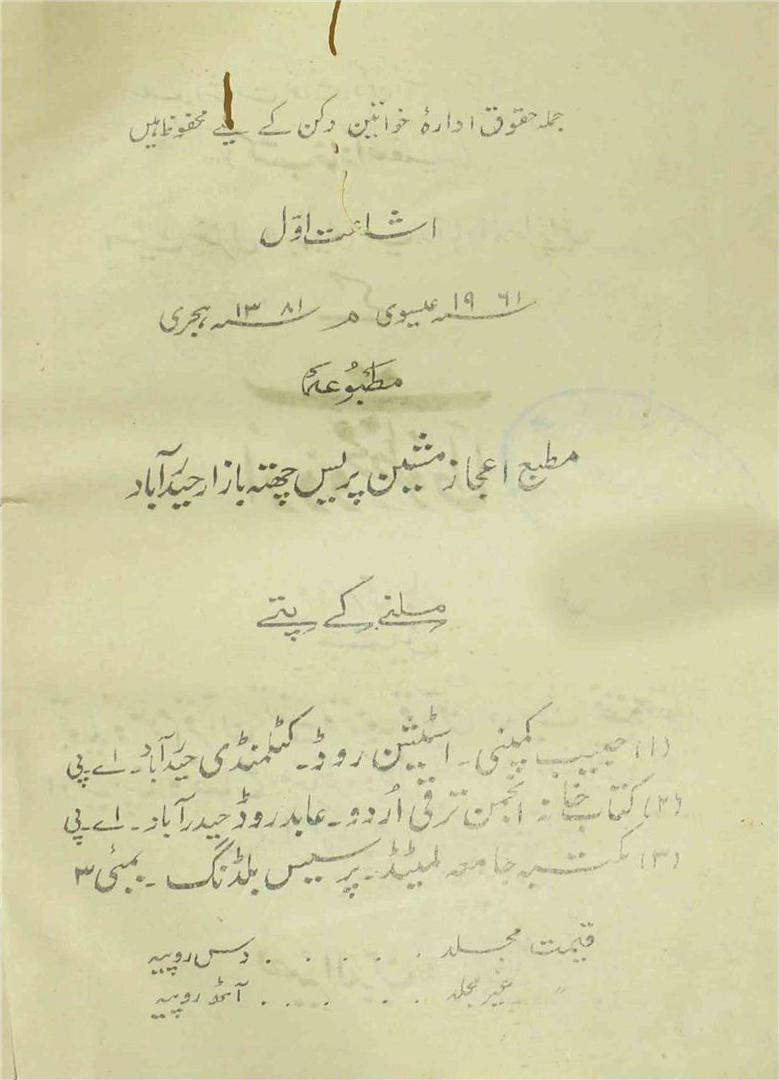 جملہ حقوق ادارۂ خواتین دکن کے لیے محفوظ ہیں
اشاعت اوّل
۱۹۶۱ عیسوی م ۱۳۸۱ ہجری
مطبُوعہ
مطبع اعجاز مشین پریس چھتہ بازار حیدرآباد
ملنے کے پتے
(۱) حبیب کمپنی۔ اسٹیشن روڈ۔ کٹلمنڈی حیدرآباد۔ اے پی
(۲) کتاب خانہ انجمن ترقی اُردو۔ عابد روڈ حیدرآباد۔ اے پی
(۳) مکتبہ جامعہ لمیٹڈ۔ پرنسیس بلڈنگ۔ بمبئی ۳
قیمت مجلد . . . . . دس روپیہ
〃 غیر مجلد . . . . . . آٹھ روپیہ